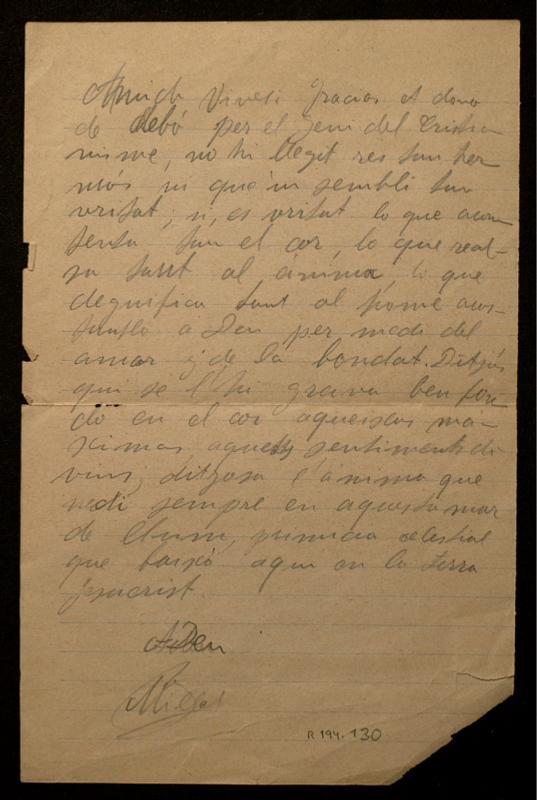 Amich Viveli Gracias et dono
de debó per el Geni del Cristia
nisme, no hi llegit res tan her
mós ni que'm sembli tan
vritat; si, es vritat lo que acon
tenta tan el cor, lo que real-
sa tant al ánima, lo que
degnifica tant al home
a Deu per medi del
amor y de la bondat. Ditjós
qui se l'hi grava ben fon
do en el cor aqueixas ma-
ximas, aquests sentiments di
vins, ditjosa l'ánima que
nedi sempre en aquesta mar
de llum, primicia celestial
que baixá aquí en la terra
Jesucrist.
A Deu
Millet
R 194.130